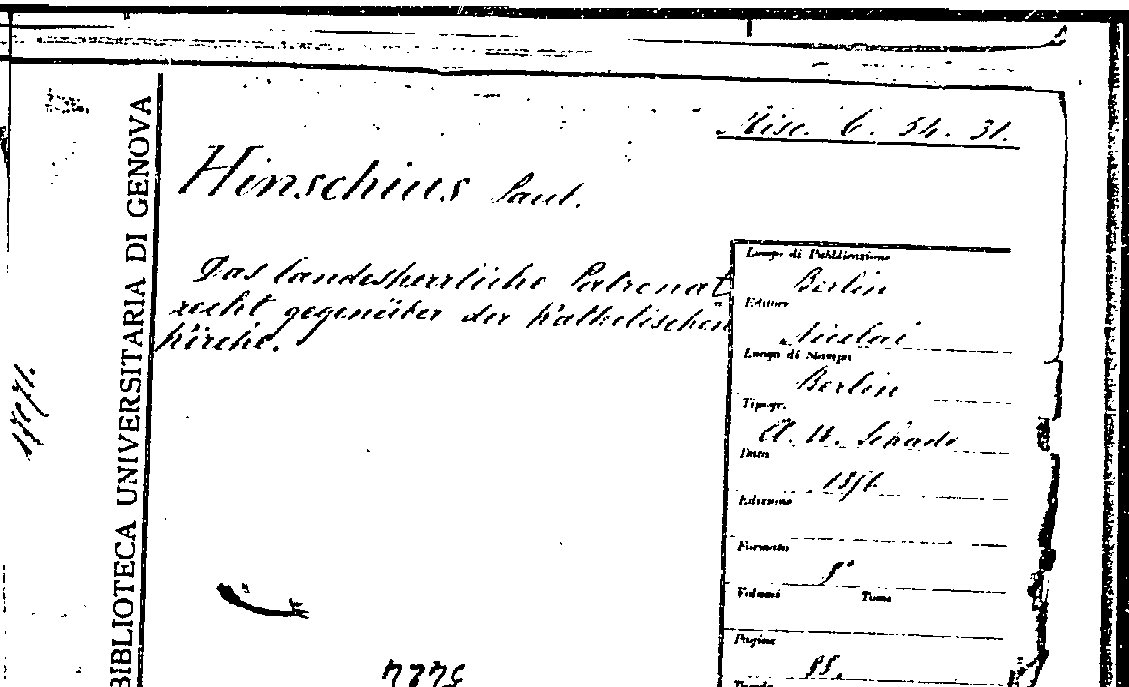 Misc. C. 54. 31.
Hinschius Paul.
Das landesherrliche Patronat
recht gegenüber der Katholischen
Kirche.
Luogo di Pubblicazione
Berlin
Editore
Nicolai
Luogo di Stampa
Berlin
Tipogr.
A. W. Schade
Data
Edizione
Formato
8°
Volumi Tomi
Pagine
BIBLIOTECA UNIVERSITARIA DI GENOVA